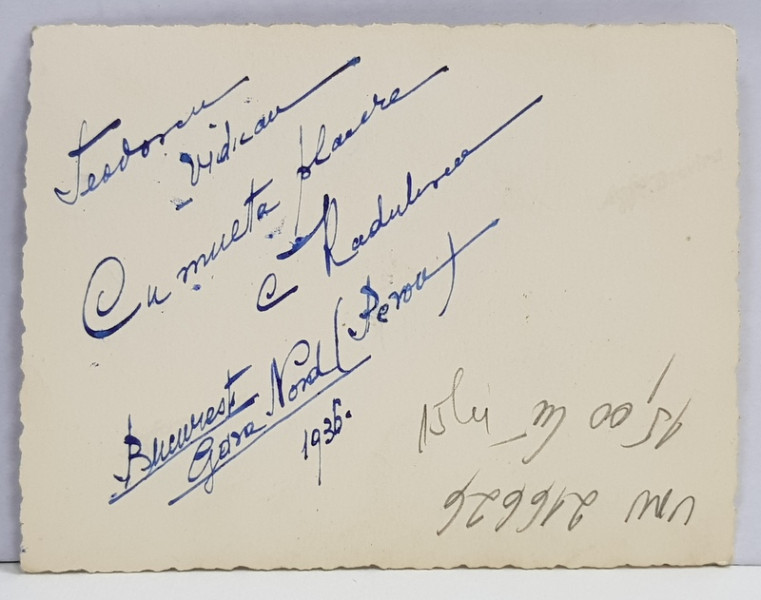 Teodorescu
Vidican
Cu multa placere
C Radulescu
Bucuresti
Gara Nord (Peron)
1936.
15,00 lei
VM 216626